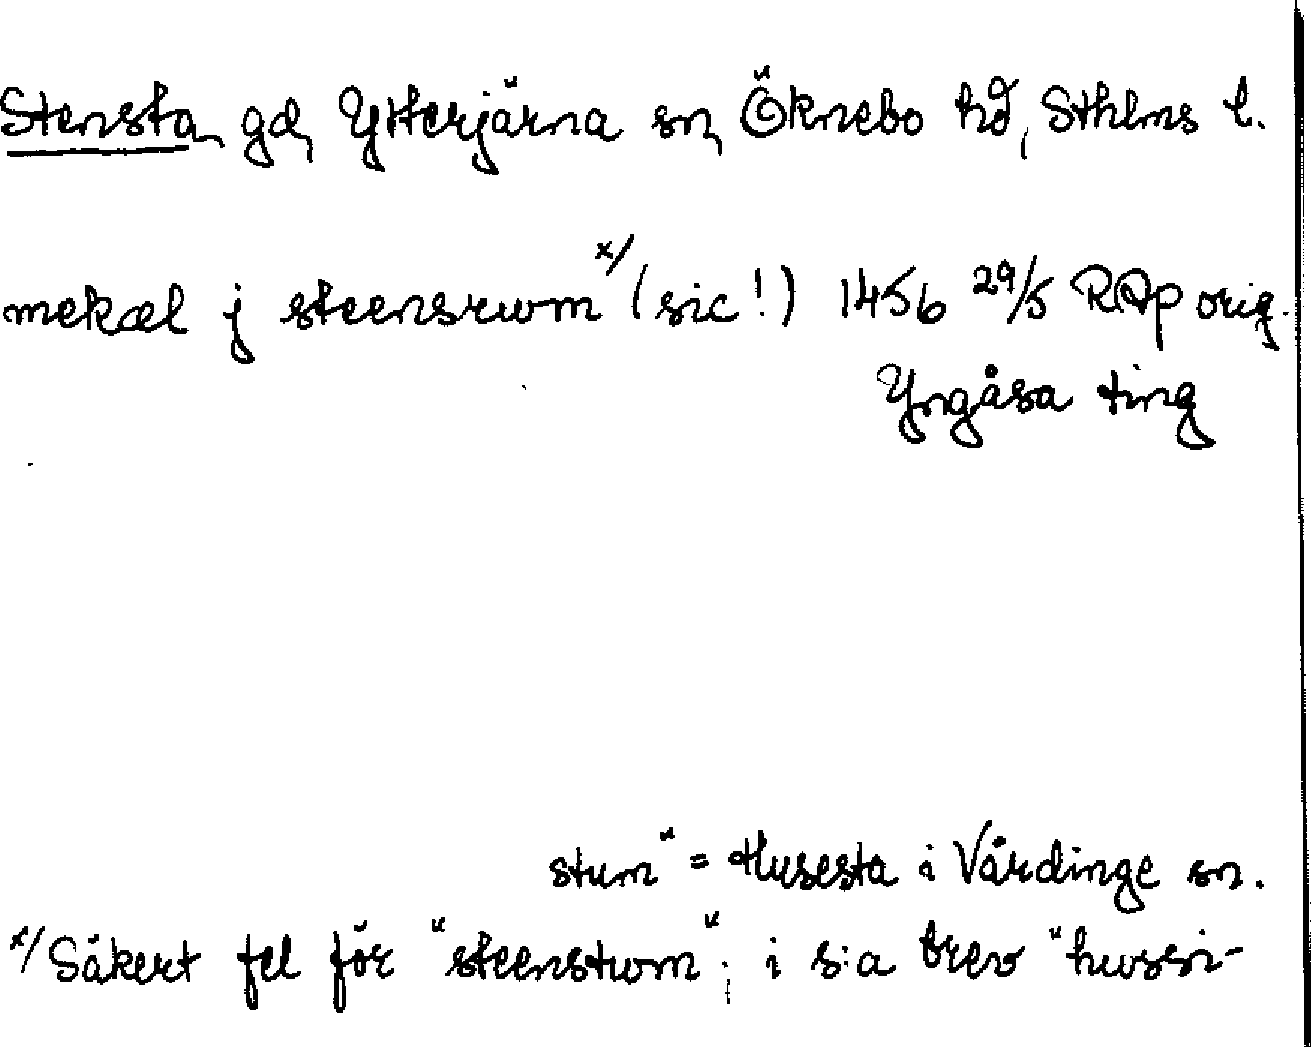 Stensta, gd, Ytterjärna sn, Öknebo hd, Sthlms l.
mekæl j steensrwm x/ (sic!) 1456 29/5 RAp orig.
Yngåsa ting
x/ Säkert fel för "steenstwm"; i s:a brev "hwssi-
stum" = Husesta i Vårdinge sn.